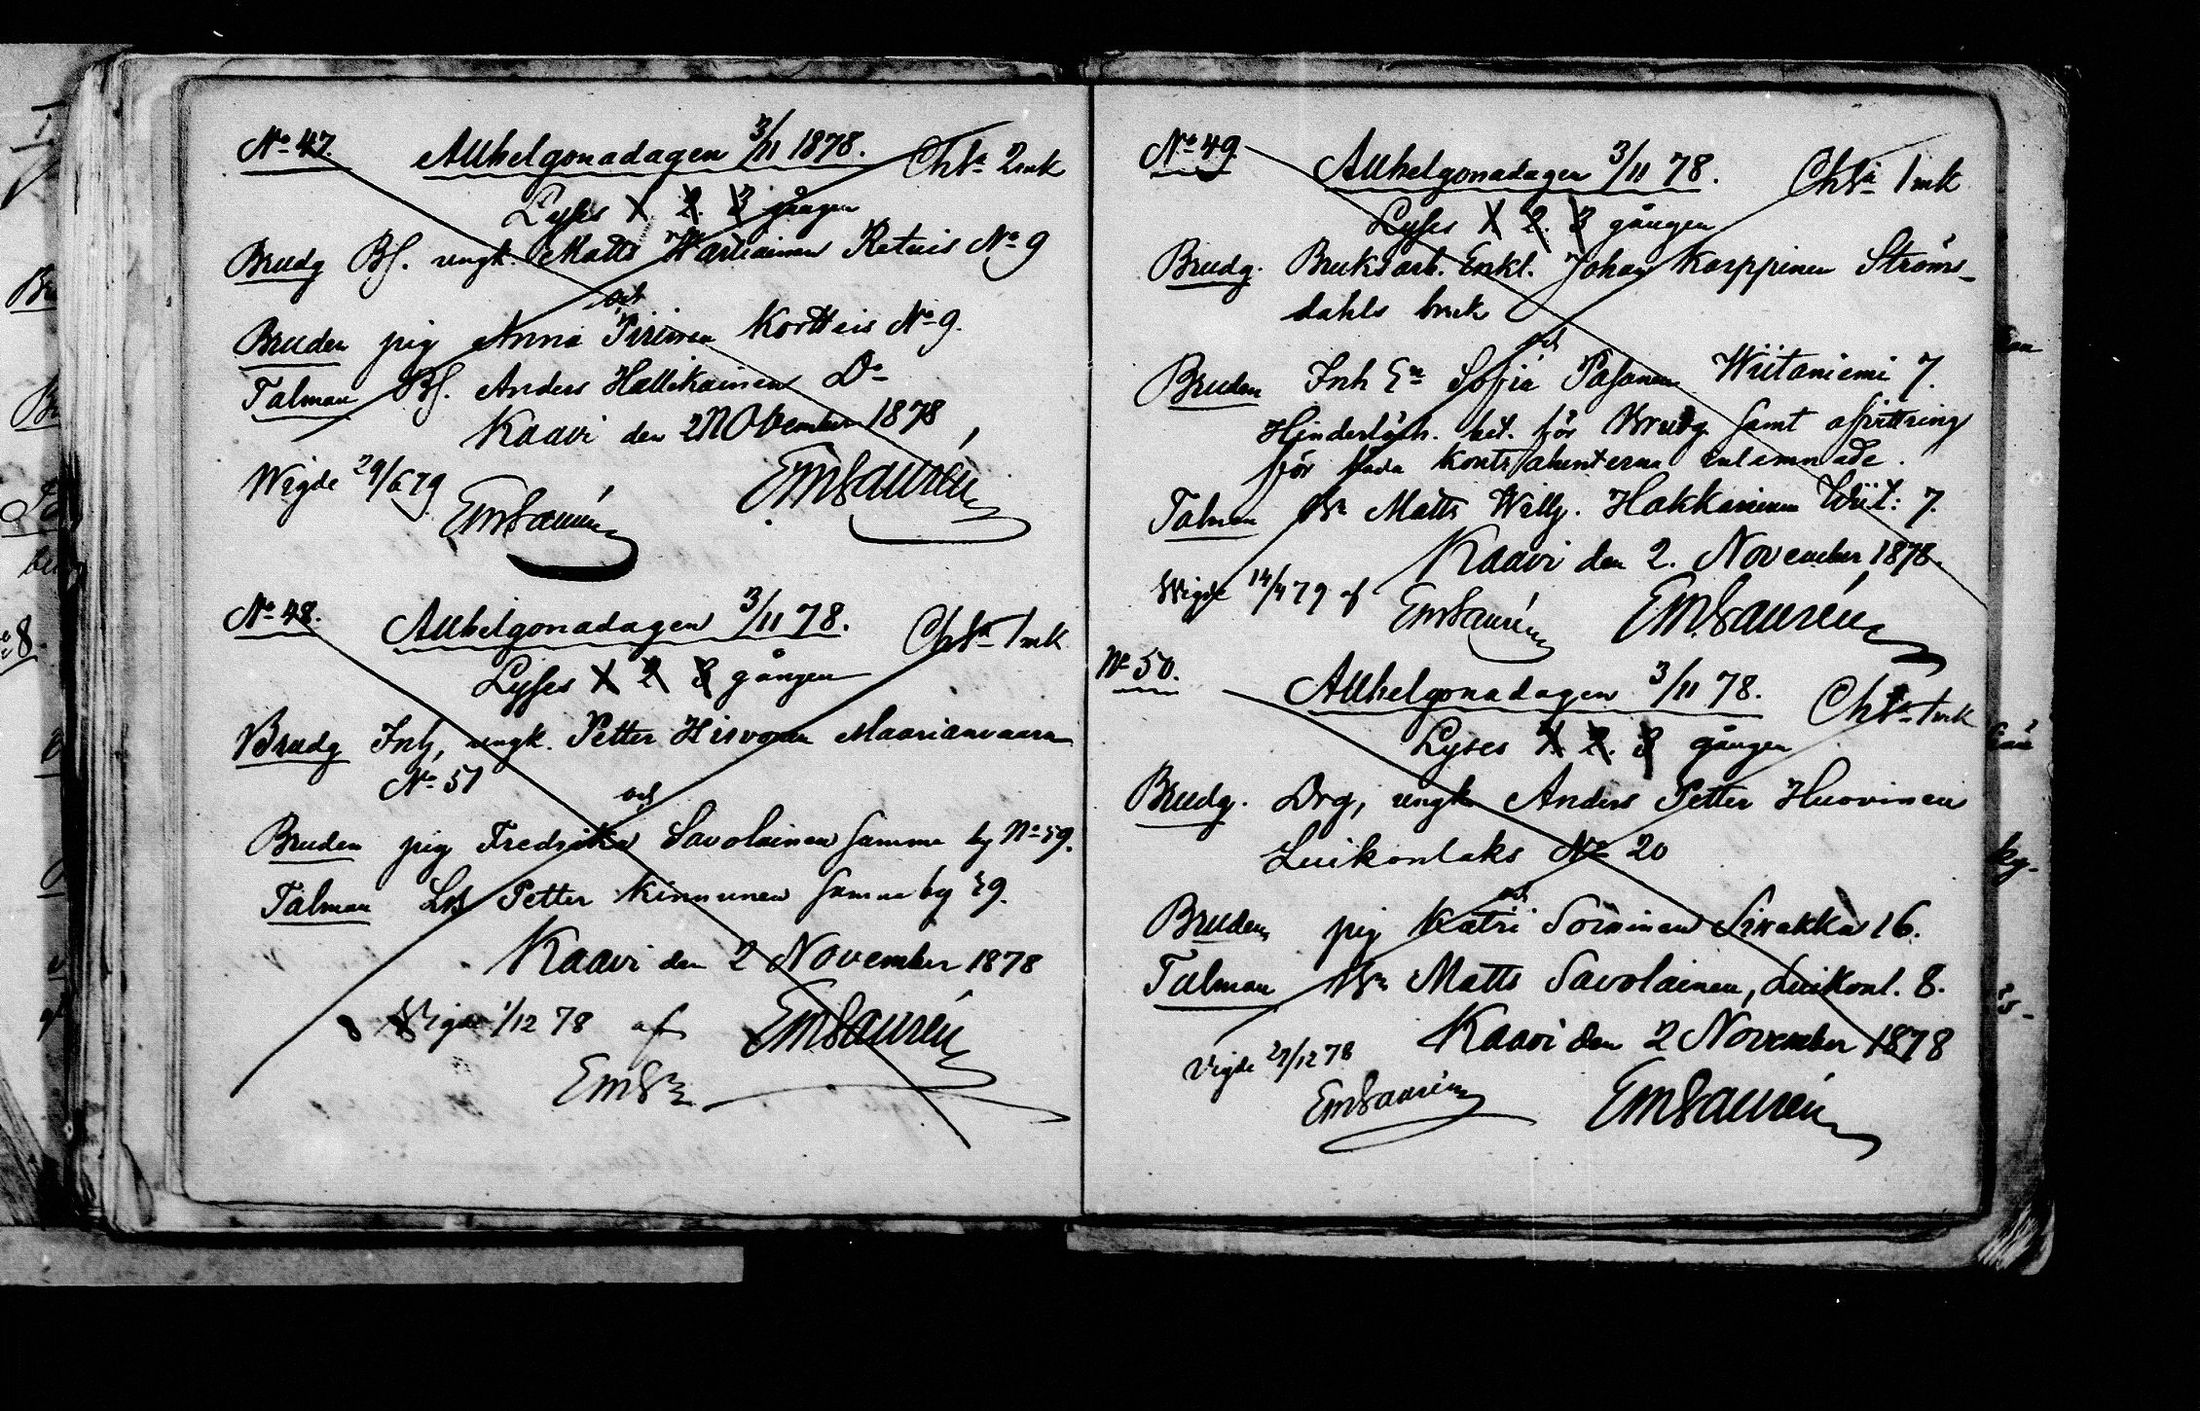 No 47. Allhelgonadagen 3/11 1878. Chta 2 mk
Lyses 1 2. 3 gången
Brudg Bs. ungk. Matts Hartiainen Retuis No 9
och
Bruden pig Anna Pirinen Kortteis No 9.
Talman Bs. Anders Hallikainen Do
Kaavi den 2 November 1878
Wigde 29/6 79 EmSaurén EmSaurén
No 48. Allhelgonadagen 3/11 78. Chta 1 mk
Lyses 1 2 3 gången
Brudg Inh, ungk. Petter Hirvonen Maarianvaara
No 51
och
Bruden pig Fredrika Savolainen samma by No 59.
Talman Petter Kinnunen samma by 59.
Kaavi den 2 November 1878
Wigde 1/12 78 af EmSaurén
EmSn
No 49. Allhelgonadagen 3/11 78. Chta 1 mk
Lyses 1 2. 3 gången
Brudg. Bruksarb. Enkl. Johan Karppinen Ströms-
dahls bruk
och
Bruden Inh En Sofia Pasanen Wiitaniemi 7.
Hinderlösh. bet. för Brudg samt afvittring
för båda kontrahenterna inlemnade.
Talman Bn Matts Wilh. Hakkarainen Wiit: 7.
Kaavi den 2. November 1878.
Wigde 14/4 79 af EmSaurén EmSaurén
No 50. Allhelgonadagen 3/11 78. Chta 1 mk
Lyses 1 2. 3 gången
Brudg. Drg, ungk Anders Petter Huovinen
Luikonlaks No 20
och
Bruden pig Katri Soininen Sivakka 16.
Talman Bn Matts Savolainen, Luikonl. 8.
Kaavi den 2 November 1878
Vigde 27/12 78
EmSaurén EmSaurén